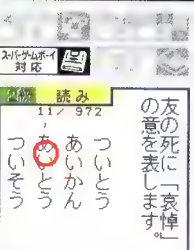 スーパーゲームボーイ
対応
級 読み
11/ 972
友の死に「哀悼」
の意を表します。
ついとう
あいかん
あいとう
ついそう